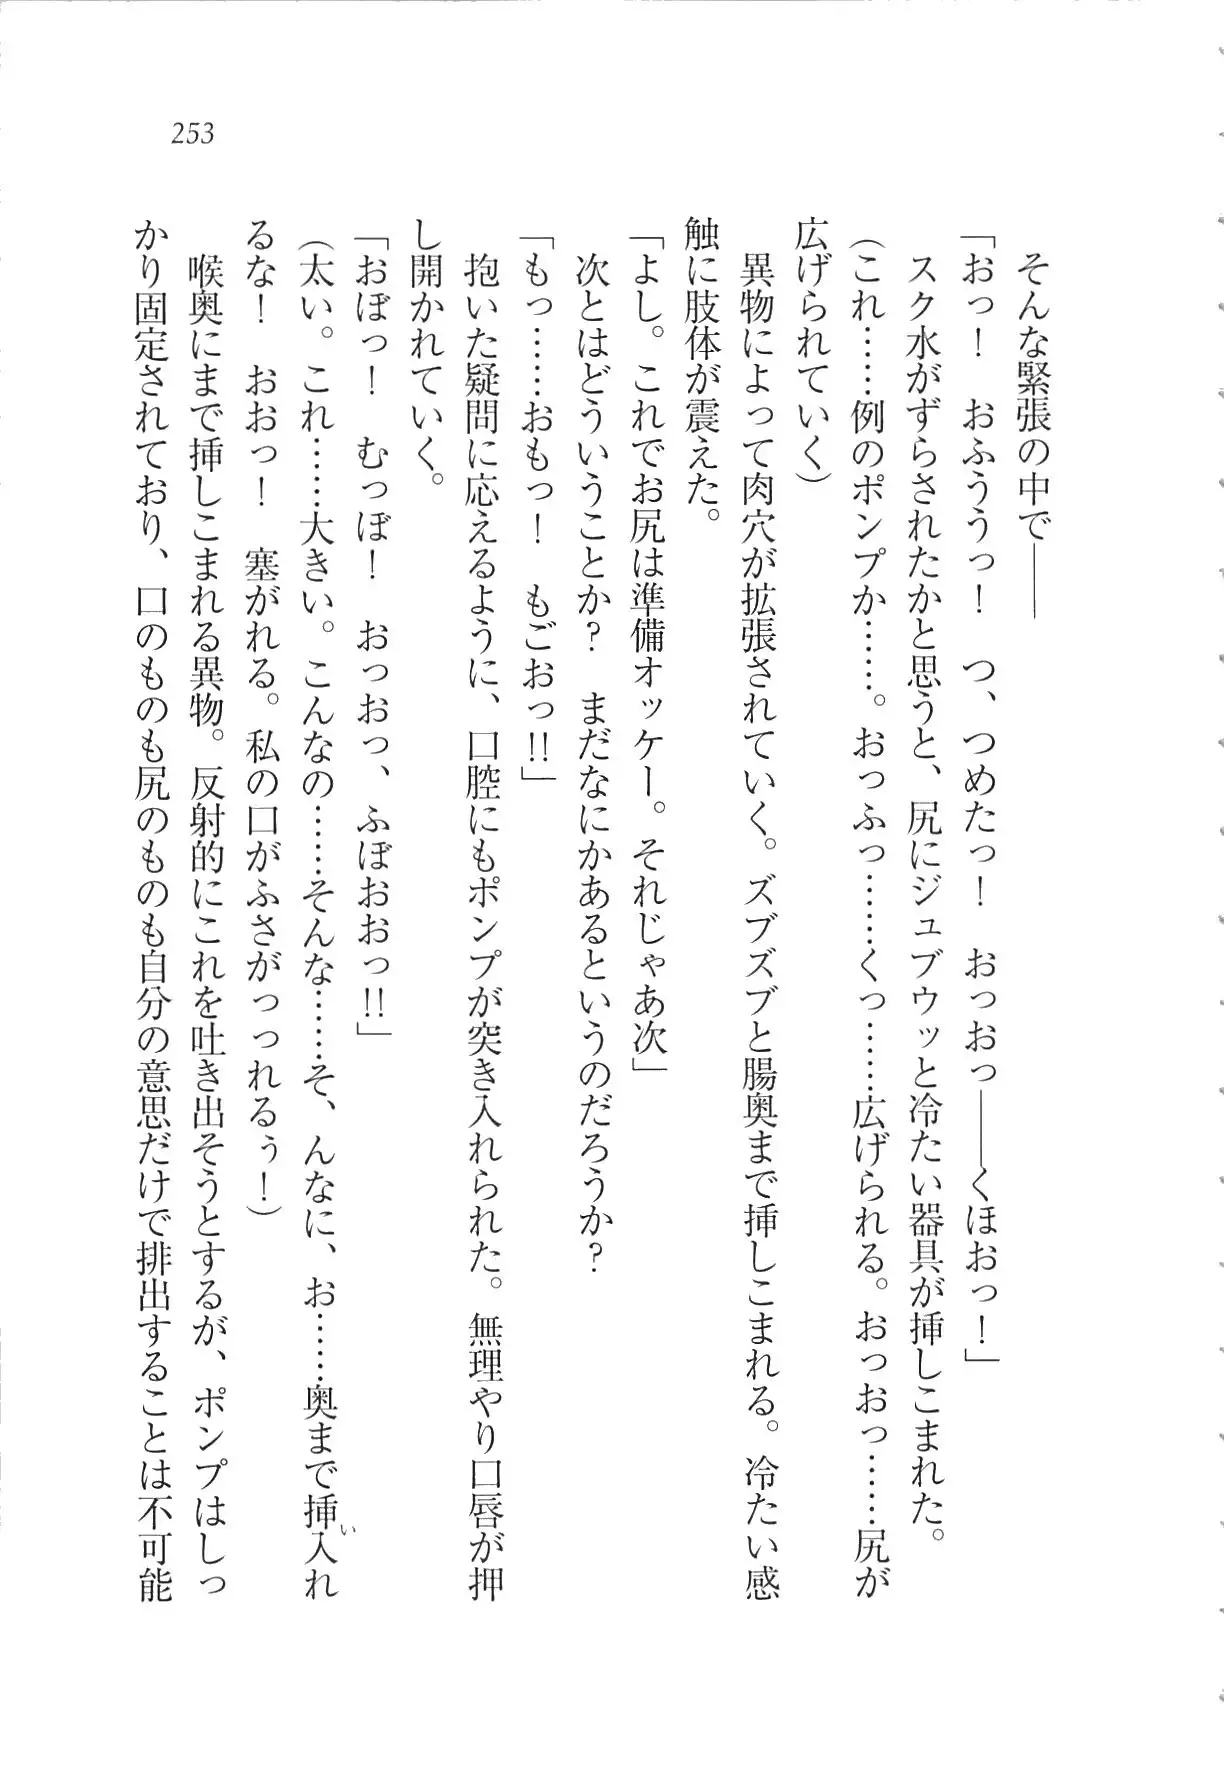 253
そんな緊張の中で――
「おっ！　おふううっ！　つ、つめたっ！　おっおっ――くほおっ！」
スク水がずらされたかと思うと、尻にジュブウッと冷たい器具が挿しこまれた。
（これ……例のポンプか……。おっふっ………くっ……広げられる。おっおっ……尻が
広げられていく）
異物によって肉穴が拡張されていく。ズブズブと腸奥まで挿しこまれる。冷たい感
触に肢体が震えた。
「よし。これでお尻は準備オッケー。それじゃあ次」
次とはどういうことか？　まだなにかあるというのだろうか？
「もっ……おもっ！　もごおっ!!」
抱いた疑問に応えるように、口腔にもポンプが突き入れられた。無理やり口唇が押
し開かれていく。
「おぼっ！　むっぼ！　おっおっ、ふぼおおっ!!」
（太い。これ………大きい。こんなの……そんな………そ、んなに、お……奥まで挿入れ
るな！　おおっ！　塞がれる。私の口がふさがっっれるぅ！）
喉奥にまで挿しこまれる異物。反射的にこれを吐き出そうとするが、ポンプはしっ
かり固定されており、口のものも尻のものも自分の意思だけで排出することは不可能